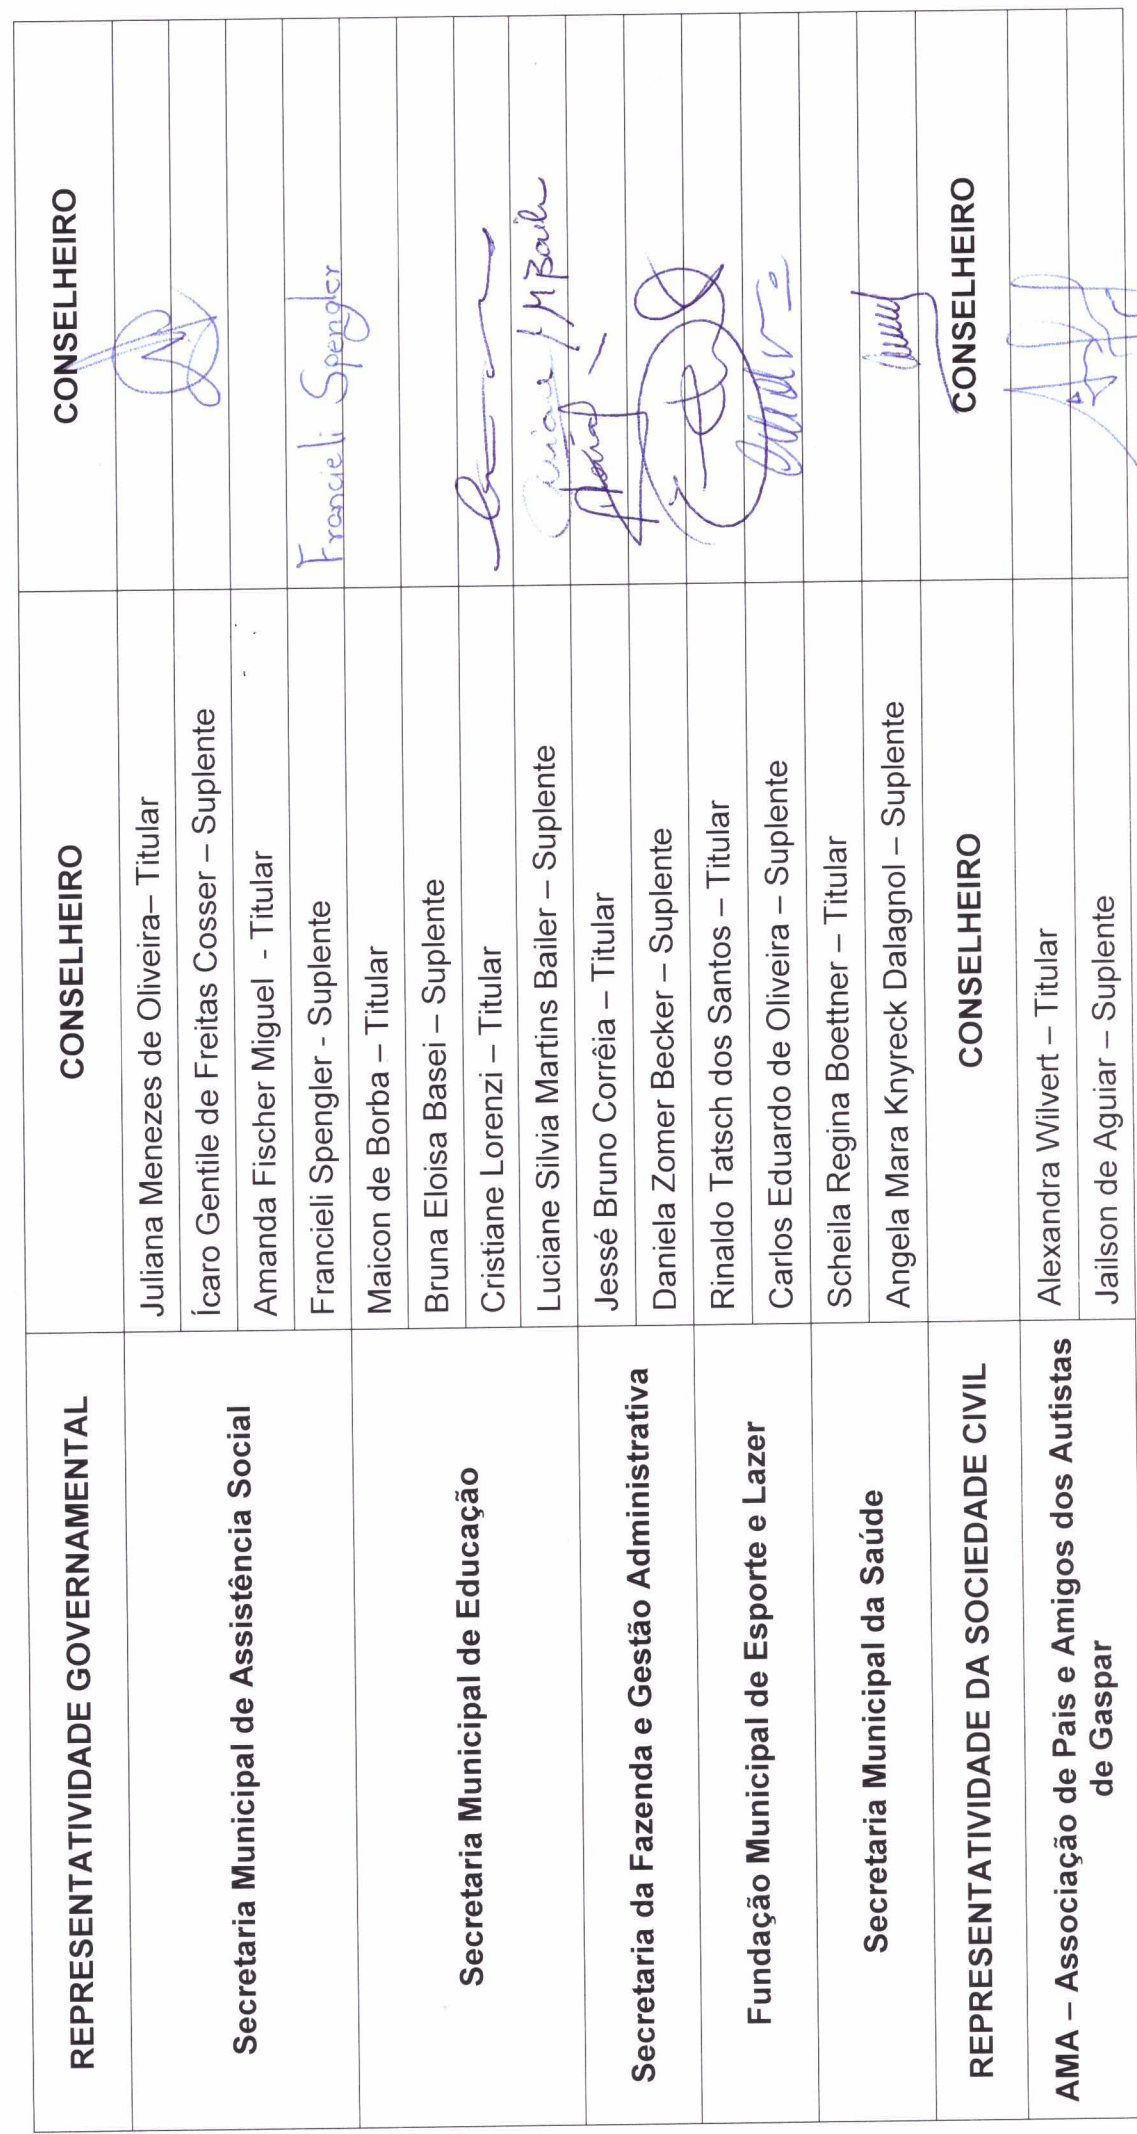 REPRESENTATIVIDADE GOVERNAMENTAL
CONSELHEIRO
CONSELHEIRO
Secretaria Municipal de Assistência Social
Juliana Menezes de Oliveira– Titular
Ícaro Gentile de Freitas Cosser – Suplente
Amanda Fischer Miguel - Titular
Francieli Spengler - Suplente
Francieli Spengler
Secretaria Municipal de Educação
Maicon de Borba – Titular
Bruna Eloisa Basei – Suplente
Cristiane Lorenzi – Titular
Luciane Silvia Martins Bailer – Suplente
Secretaria da Fazenda e Gestão Administrativa
Jessé Bruno Corrêia – Titular
Daniela Zomer Becker – Suplente
Fundação Municipal de Esporte e Lazer
Rinaldo Tatsch dos Santos – Titular
Carlos Eduardo de Oliveira – Suplente
Secretaria Municipal da Saúde
Scheila Regina Boettner – Titular
Angela Mara Knyreck Dalagnol – Suplente
REPRESENTATIVIDADE DA SOCIEDADE CIVIL
CONSELHEIRO
CONSELHEIRO
AMA – Associação de Pais e Amigos dos Autistas
de Gaspar
Alexandra Wilvert – Titular
Jailson de Aguiar – Suplente